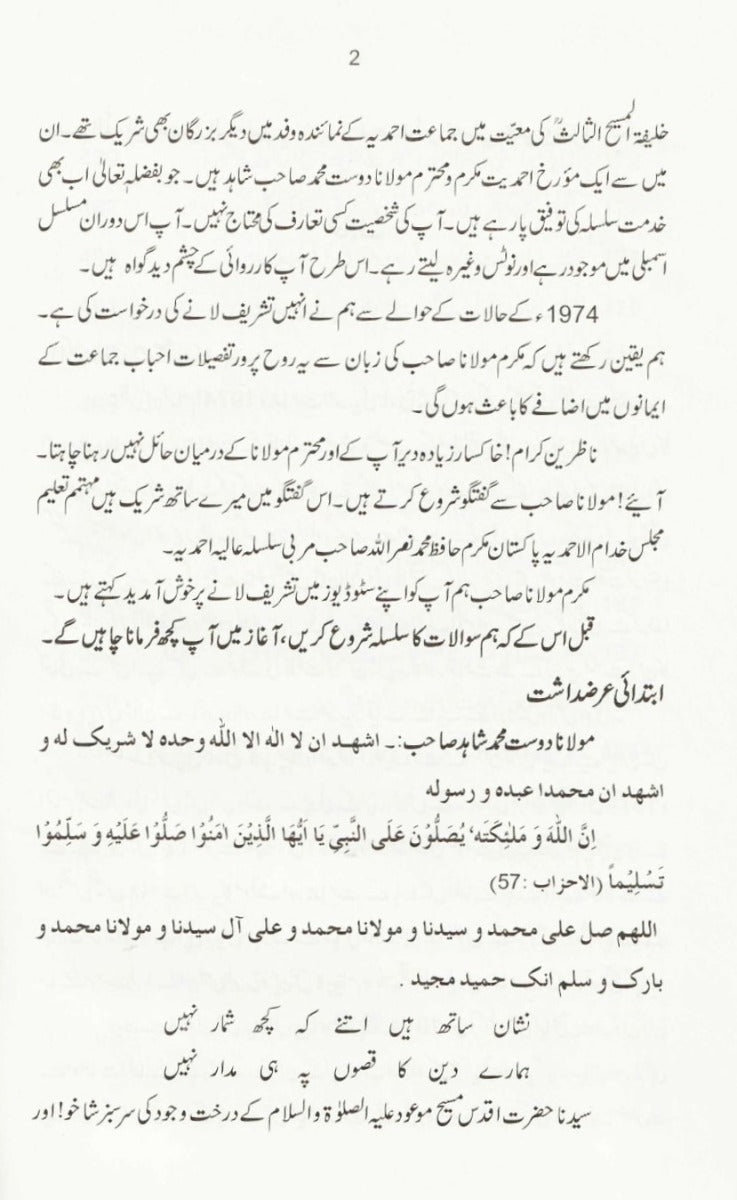 2
خلیفۃ المسیح الثالثؒ کی معیّت میں جماعت احمدیہ کے نمائندہ وفد میں دیگر بزرگان بھی شریک تھے۔ ان
میں سے ایک مؤرخ احمدیت مکرم و محترم مولانا دوست محمد صاحب شاہد ہیں۔ جو بفضلہ تعالیٰ اب بھی
خدمت سلسلہ کی توفیق پا رہے ہیں۔ آپ کی شخصیت کسی تعارف کی محتاج نہیں۔ آپ اس دوران مسلسل
اسمبلی میں موجود رہے اور نوٹس وغیرہ لیتے رہے۔ اس طرح آپ کارروائی کے چشم دید گواہ ہیں۔
1974ء کے حالات کے حوالے سے ہم نے انہیں تشریف لانے کی درخواست کی ہے۔
ہم یقین رکھتے ہیں کہ مکرم مولانا صاحب کی زبان سے یہ روح پرور تفصیلات احباب جماعت کے
ایمانوں میں اضافے کا باعث ہوں گی۔
ناظرین کرام! خاکسار زیادہ دیر آپ کے اور محترم مولانا کے درمیان حائل نہیں رہنا چاہتا۔
آیئے! مولانا صاحب سے گفتگو شروع کرتے ہیں۔ اس گفتگو میں میرے ساتھ شریک ہیں مہتمم تعلیم
مجلس خدام الاحمدیہ پاکستان مکرم حافظ محمد نصر اللہ صاحب مربی سلسلہ عالیہ احمدیہ۔
مکرم مولانا صاحب ہم آپ کو اپنے سٹوڈیوز میں تشریف لانے پر خوش آمدید کہتے ہیں۔
قبل اس کے کہ ہم سوالات کا سلسلہ شروع کریں، آغاز میں آپ کچھ فرمانا چاہیں گے۔
ابتدائی عرضداشت
مولانا دوست محمد شاہد صاحب:۔ اشھد ان لا الٰہ الا اللہ وحدہ لا شریک لہ و
اشھد ان محمدا عبدہ و رسولہ
اِنَّ اللّٰہَ وَ مَلٰٓئِکَتَہٗ یُصَلُّوْنَ عَلَی النَّبِیِّ یَا اَیُّھَا الَّذِیْنَ اٰمَنُوْا صَلُّوْا عَلَیْہِ وَ سَلِّمُوْا
تَسْلِیْماً (الاحزاب :57)
اللھم صل علی محمد و سیدنا و مولانا محمد و علی آل سیدنا و مولانا محمد و
بارک و سلم انک حمید مجید .
نشان ساتھ ہیں اتنے کہ کچھ شمار نہیں
ہمارے دین کا قصوں پہ ہی مدار نہیں
سیدنا حضرت اقدس مسیح موعود علیہ الصلوٰۃ والسلام کے درخت وجود کی سرسبز شاخو! اور